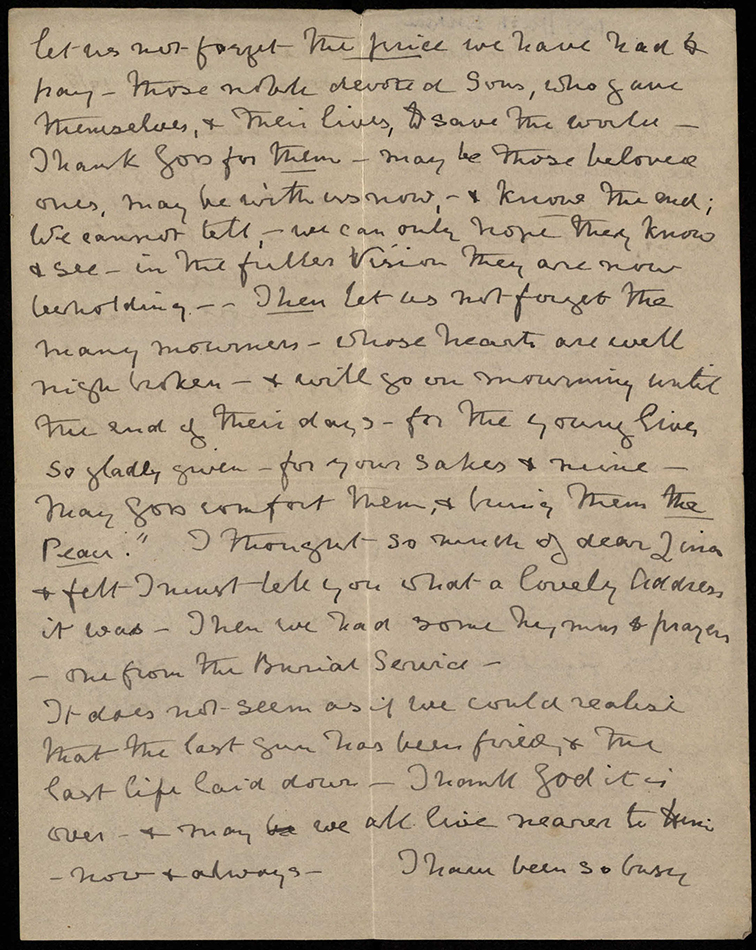 let us not forget the price we have had to
pay - those noble devoted Sons, who gave
themselves, & their lives, to save the world -
Thank God for them - may be those beloved
ones, may be with us now, - & know the end;
We cannot tell, - we can only hope they know
& see - in the fuller Vision they are now
beholding - - Then let us not forget the
many mourners - whose hearts are well
nigh broken - & will go on mourning until
the end of their days - for the young lives
so gladly given - for your sakes & mine -
May God comfort them, & bring them the
Peace." I thought so much of dear
& felt I must tell you what a lovely Address
it was - Then we had some hymns & prayers
- one from the Burial Service -
It does not seem as if we could realise
that the last gun has been fired, & the
last life laid down - Thank God it is
over - & may we all live nearer to Him
- now & always - I have been so busy